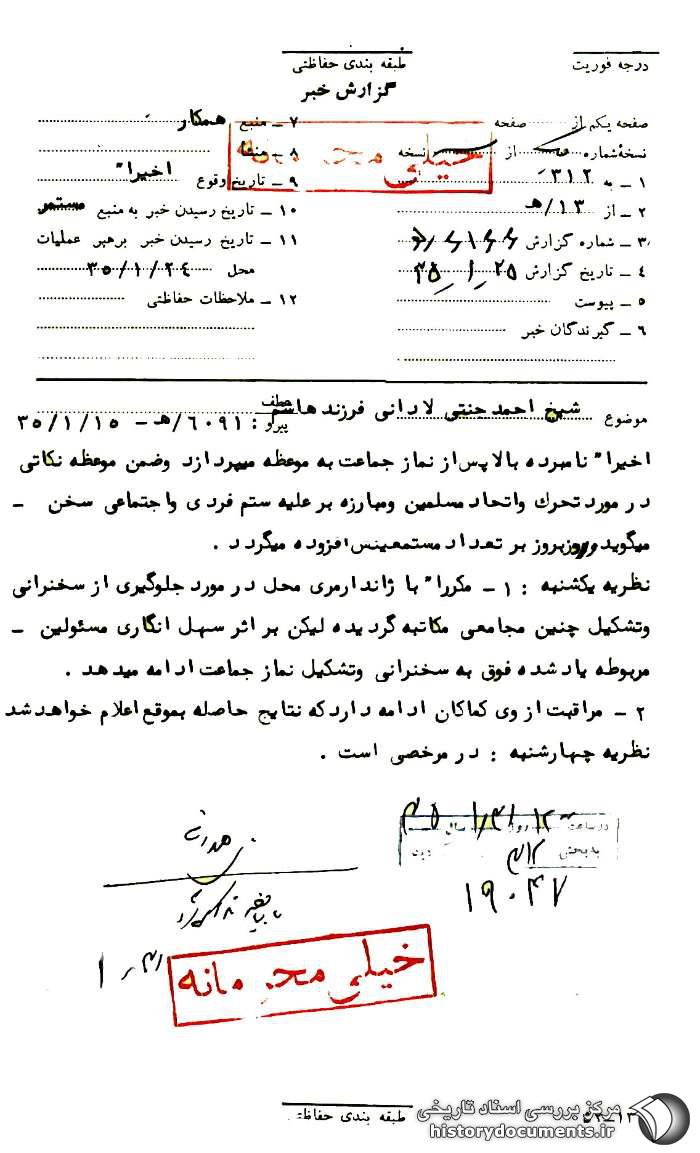 درجه فوریت
طبقه بندی حفاظتی
گزارش خبر
صفحه یکم از صفحه
نسخهٔ شماره از نسخه
۱ ـ به ۳۱۲
۲ ـ از ۱۳/هـ
۳ ـ شماره گزارش
۴ ـ تاریخ گزارش ۳۵ـ۱ـ۲۵
۵ ـ پیوست
۶ ـ گیرندگان خبر
۷ ـ منبع همکار
۸ ـ منشاء
۹ ـ تاریخ وقوع اخیرا"
۱۰ ـ تاریخ رسیدن خبر به منبع مستمر
۱۱ ـ تاریخ رسیدن خبر برهبر عملیات
محل ۳۵/۱/۲۴
۱۲ ـ ملاحظات حفاظتی
خیلی محرمانه
موضوع شیخ احمد جنتی لادانی فرزند هاشم
عطف
پیرو : ۶۰۹۱/هـ ـ ۳۵/۱/۱۵
اخیرا" نامبرده بالا پس از نماز جماعت به موعظه میپردازد وضمن موعظه نکاتی
در مورد تحرک واتحاد مسلمین ومبارزه بر علیه ستم فردی واجتماعی سخن ـ
میگوید وروزبروز بر تعداد مستمعینس افزوده میگردد .
نظریه یکشنبه : ۱ ـ مکررا" با ژاندارمری محل در مورد جلوگیری از سخنرانی
وتشکیل چنین مجامعی مکاتبه گردیده لیکن بر اثر سهل انگاری مسئولین ـ
مربوطه یاد شده فوق به سخنرانی وتشکیل نماز جماعت ادامه میدهد .
۲ ـ مراقبت از وی کماکان ادامه دارد که نتایج حاصله بموقع اعلام خواهد شد
نظریه چهارشنبه : در مرخصی است .
در ساعت روز سال
به بخش ۳۱۲
۱۹۰۴۷
خیلی محرمانه
طبقه بندی حفاظتی
مرکز بررسی اسناد تاریخی
historydocuments.ir